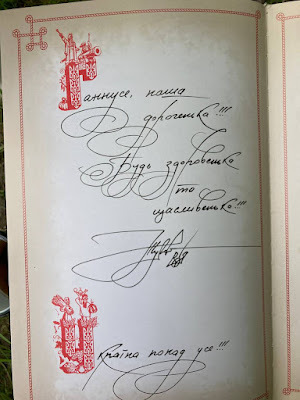 Ганнусе, наша
дорогенька!!!
Будь здоровенька
та
щасливенька!!!
Україна понад усе!!!